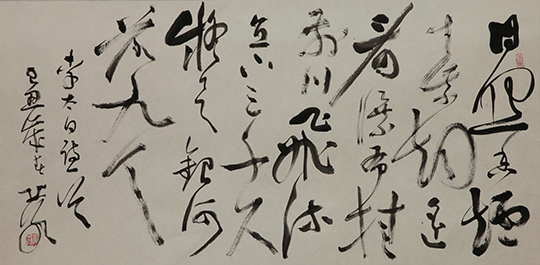 日照香爐
生紫烟遥
看瀑布挂
前川飛流
直下三千尺
疑是銀河
落九天
李太白詩
己丑